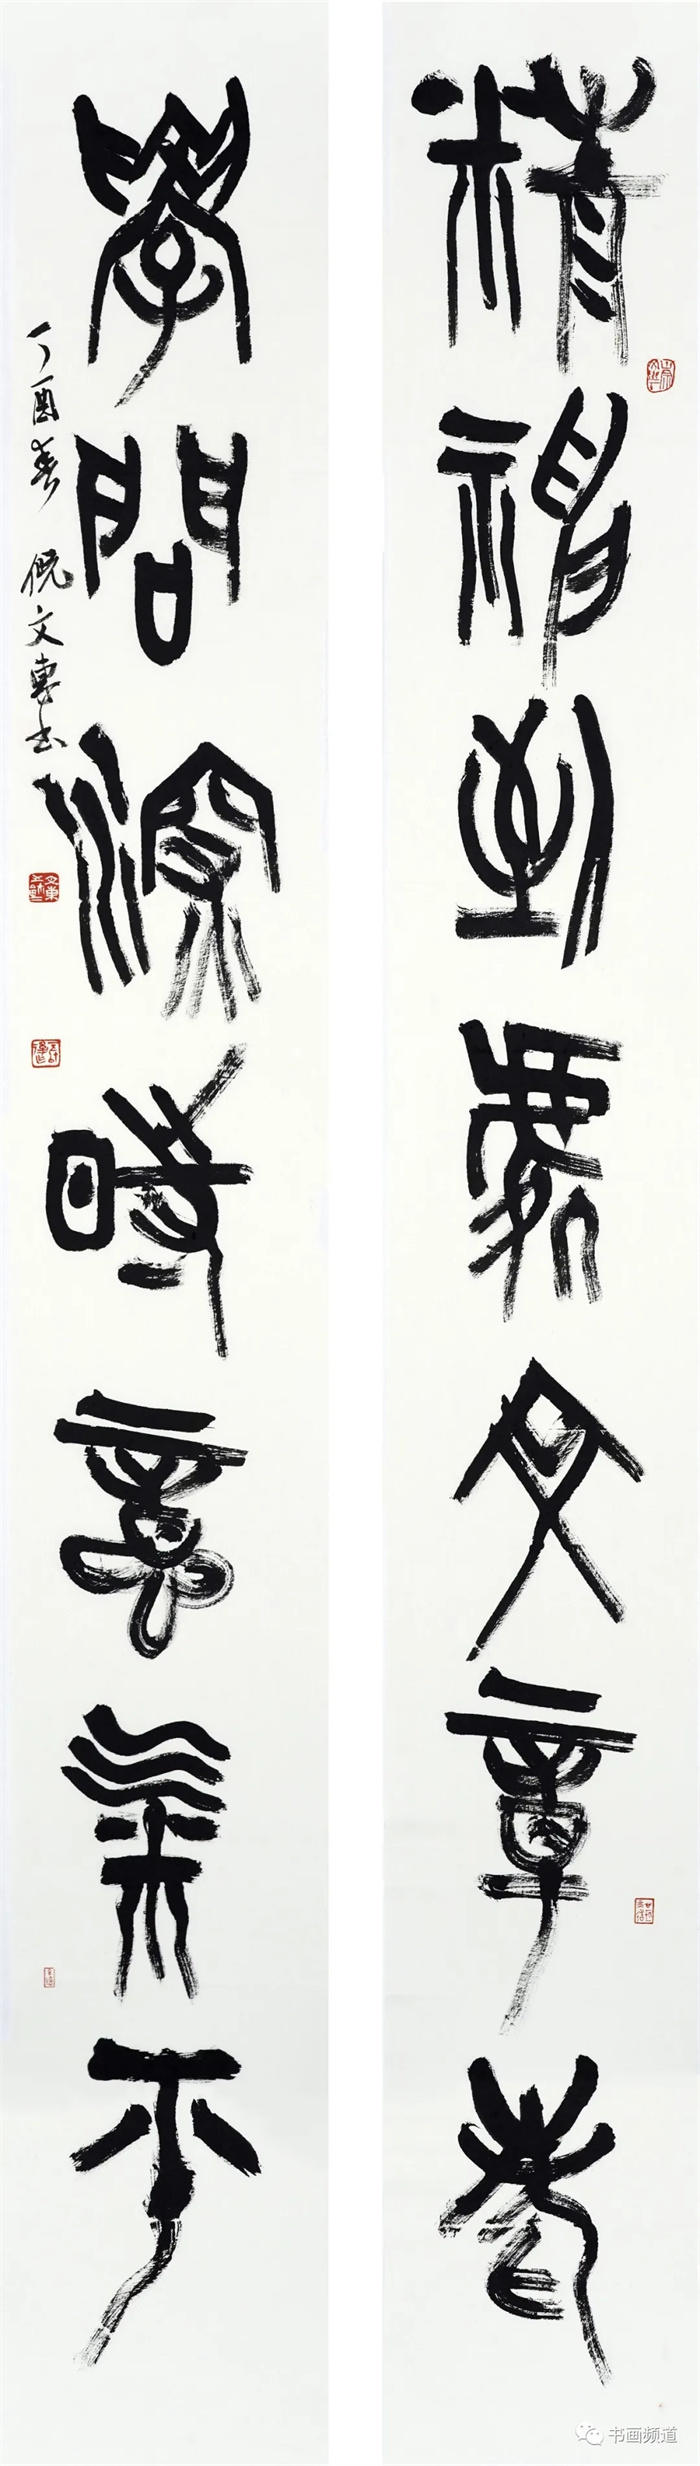 精神到處文章老
學問深時意氣平
丁酉春 倪文東書
书画频道